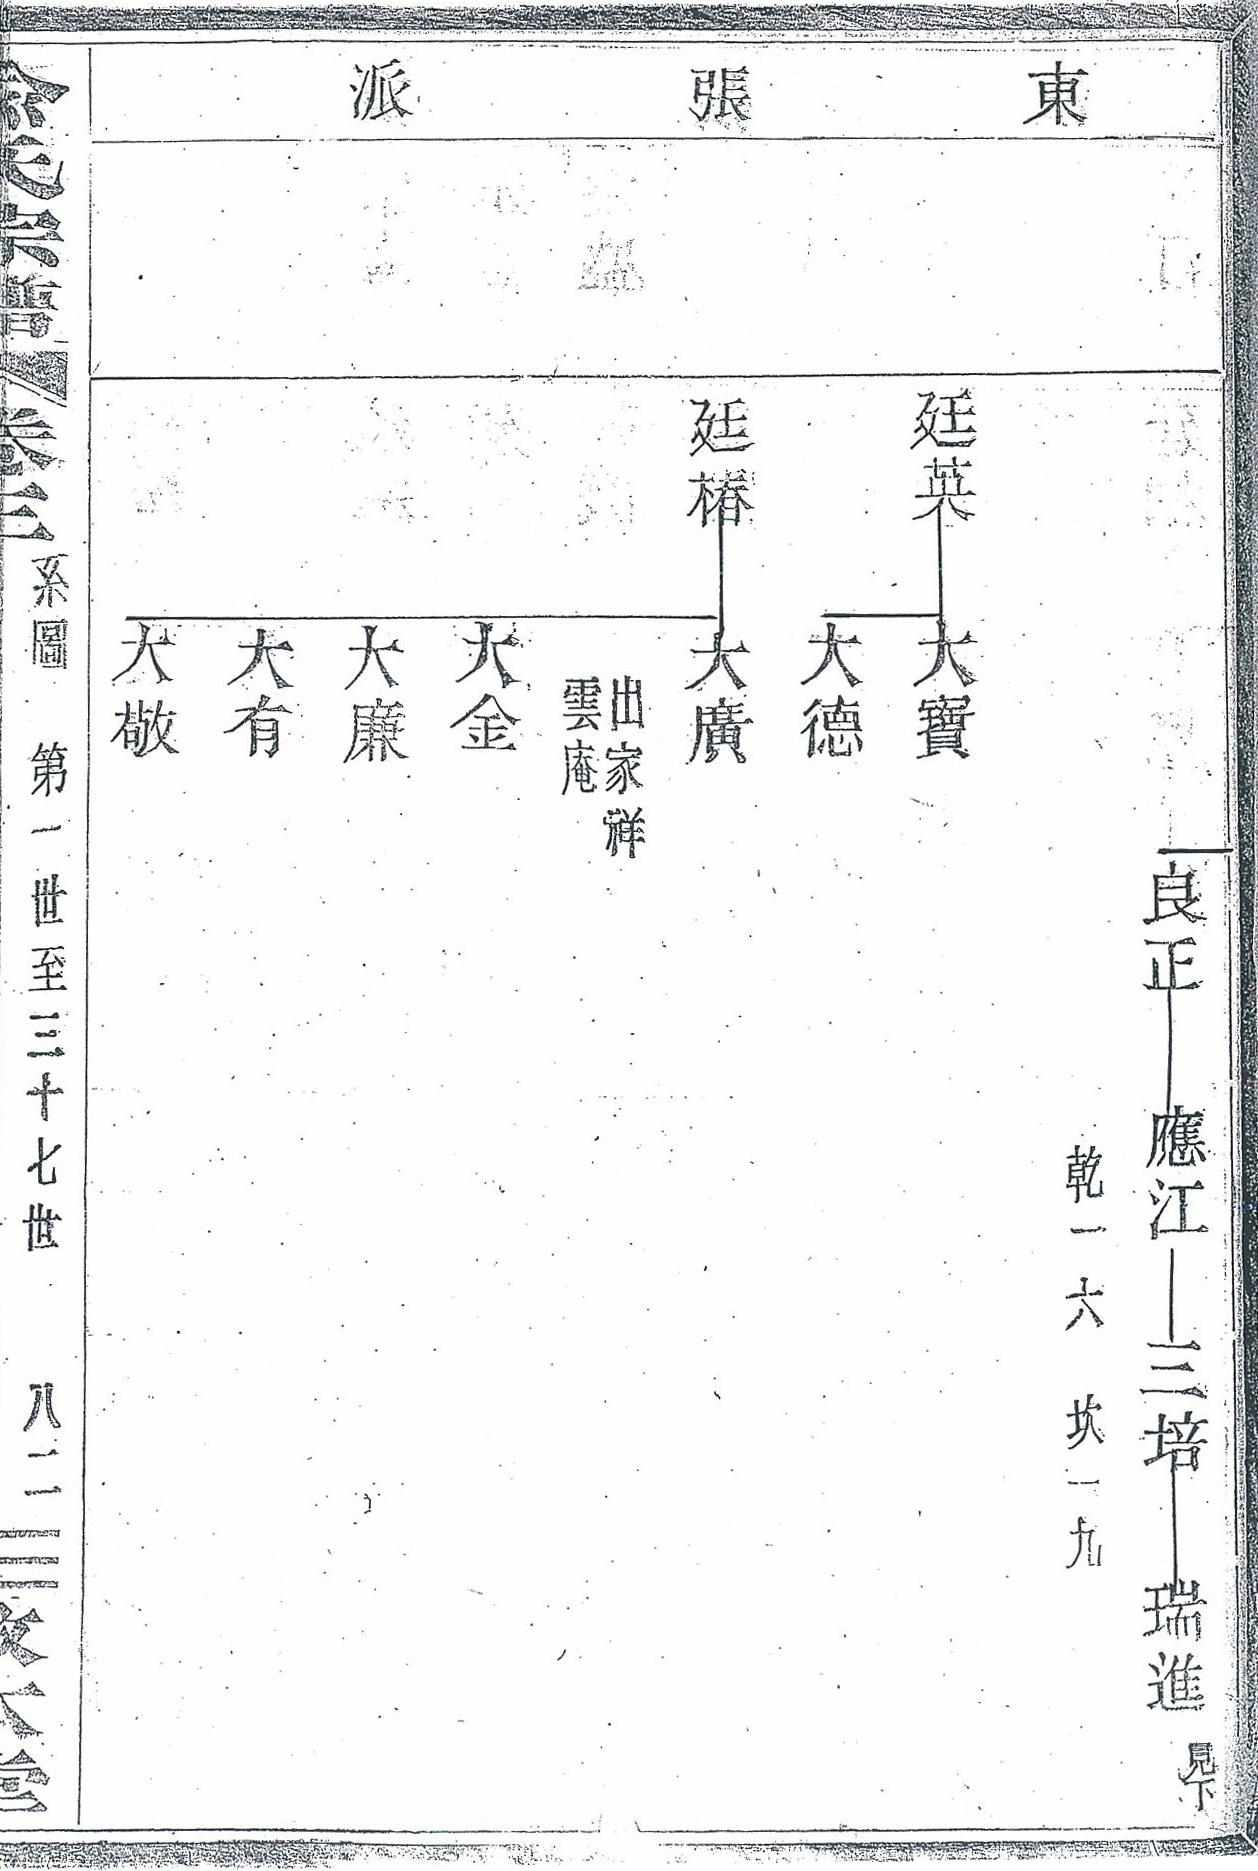 東張派
良正
應江
三培
瑞進
見下
乾一六 坎一九
廷英
大寶
大德
廷椿
大廣
出家祥
雲庵
大金
大廉
大有
大敬
氏宗譜
卷三
系圖 第一世至三十七世 八二